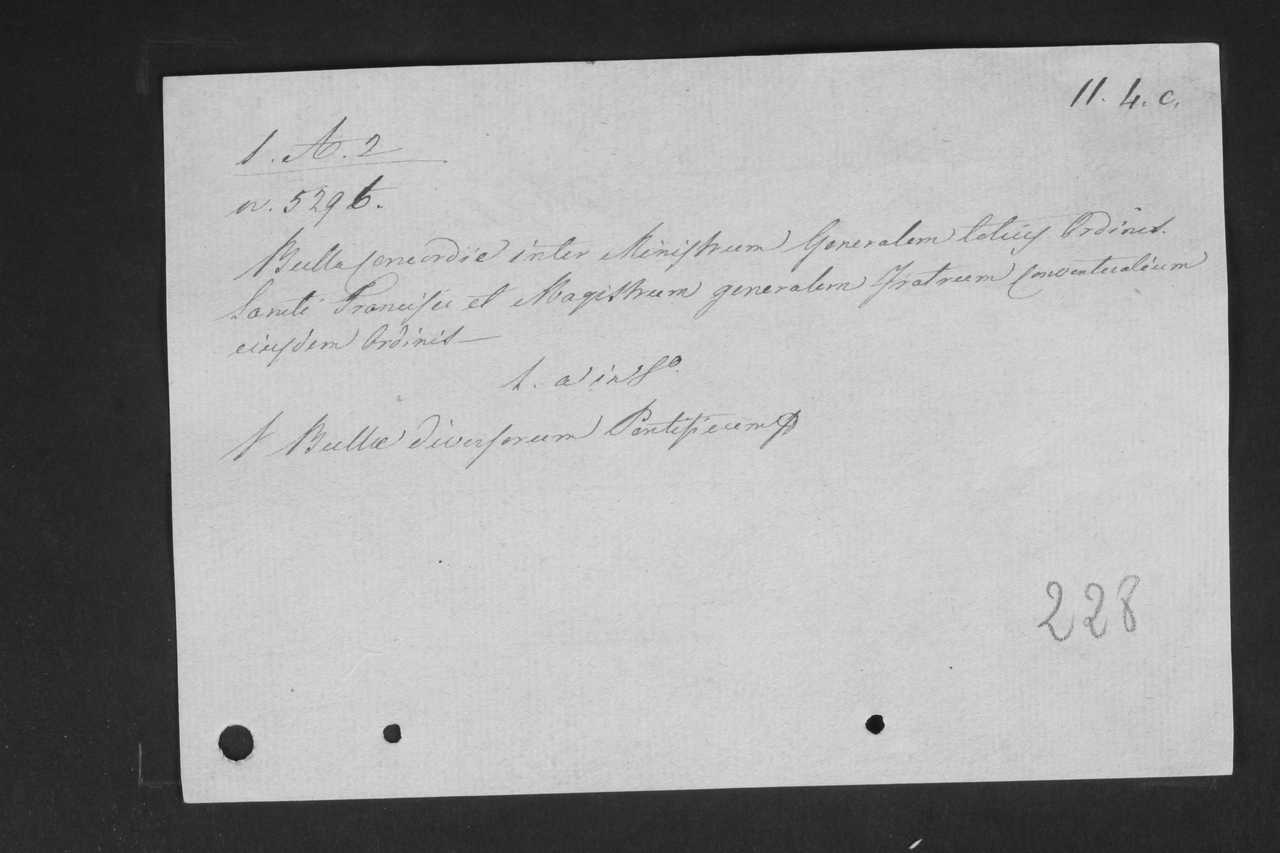 11. 4. c.
1. A. 2
n. 5296.
Bulla concordie inter Ministrum Generalem totius Ordinis.
Sancti Francisci et Magistrum generalem Fratrum Conventualium
eiusdem Ordinis
1. a in fo.
V Bullae diversorum Pontificum
228